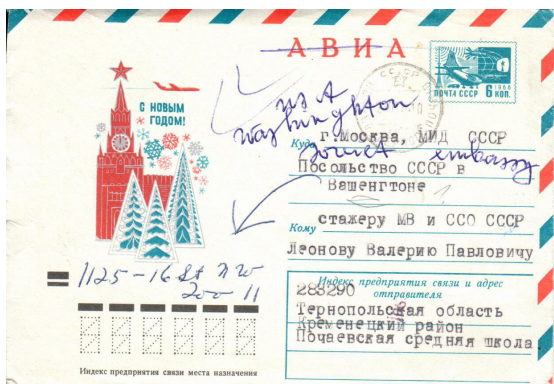 АВИА
1966
ПОЧТА СССР 6 КОП.
С НОВЫМ
ГОДОМ!
USA
Washington
Soviet embassy
Куда г.Москва, МИД СССР
Посольство СССР в
Вашенгтоне
Кому стажеру МВ и ССО СССР
Леонову Валерию Павловичу
1125-16 St NW
200 11
Индекс предприятия связи и адрес
отправителя
283290
Тернопольская область
Кременецкий район
Почаевская средняя школа
Индекс предприятия связи места назначения